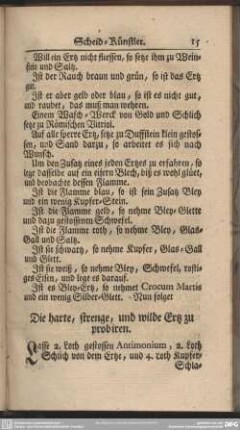 Scheid-Künstler. 15
Will ein Ertz nicht fliessen, so setze ihm zu Wein-
stein und Saltz.
Ist der Rauch braun und grün, so ist das Ertz
gut.
Ist er aber geld oder blau, so ist es nicht gut,
und raubet, das muß man wehren.
Einem Wasch-Werck von Gold und Schlich
setze zu Römischen Vitriol.
Auf alle sperre Ertz, setze zu Duffstein klein gestos-
sen, und Sand darzu, so arbeitet es sich nach
Wunsch.
Um den Zusatz eines jeden Ertzes zu erfahren, so
lege dasselbe auf ein eisern Blech, biß es wohl glüet,
und beobachte dessen Flamme.
Ist die Flamme blau, so ist sein Zusatz Bley
und ein wenig Kupfer-Stein.
Ist die Flamme gelb, so nehme Bley-Glette
und dazu gestossenem Schwefel.
Ist die Flamme roth, so nehme Bley, Glas-
Gall und Saltz.
Ist sie schwartz, so nehme Kupfer, Glas-Gall
und Glett.
Ist sie weiß, so nehme Bley, Schwefel, rosti-
ges Eisen, und lege es darauf.
Ist es Bley-Ertz, so nehmet Crocum Martis
und ein wenig Silber-Glett. Nun folget
Die harte, strenge, und wilde Ertz zu
probiren.
Lasse 2. Loth gestossen Antimonium, 2. Loth
Schlich von dem Ertze, und 4. Loth Kupfer-
Schla-